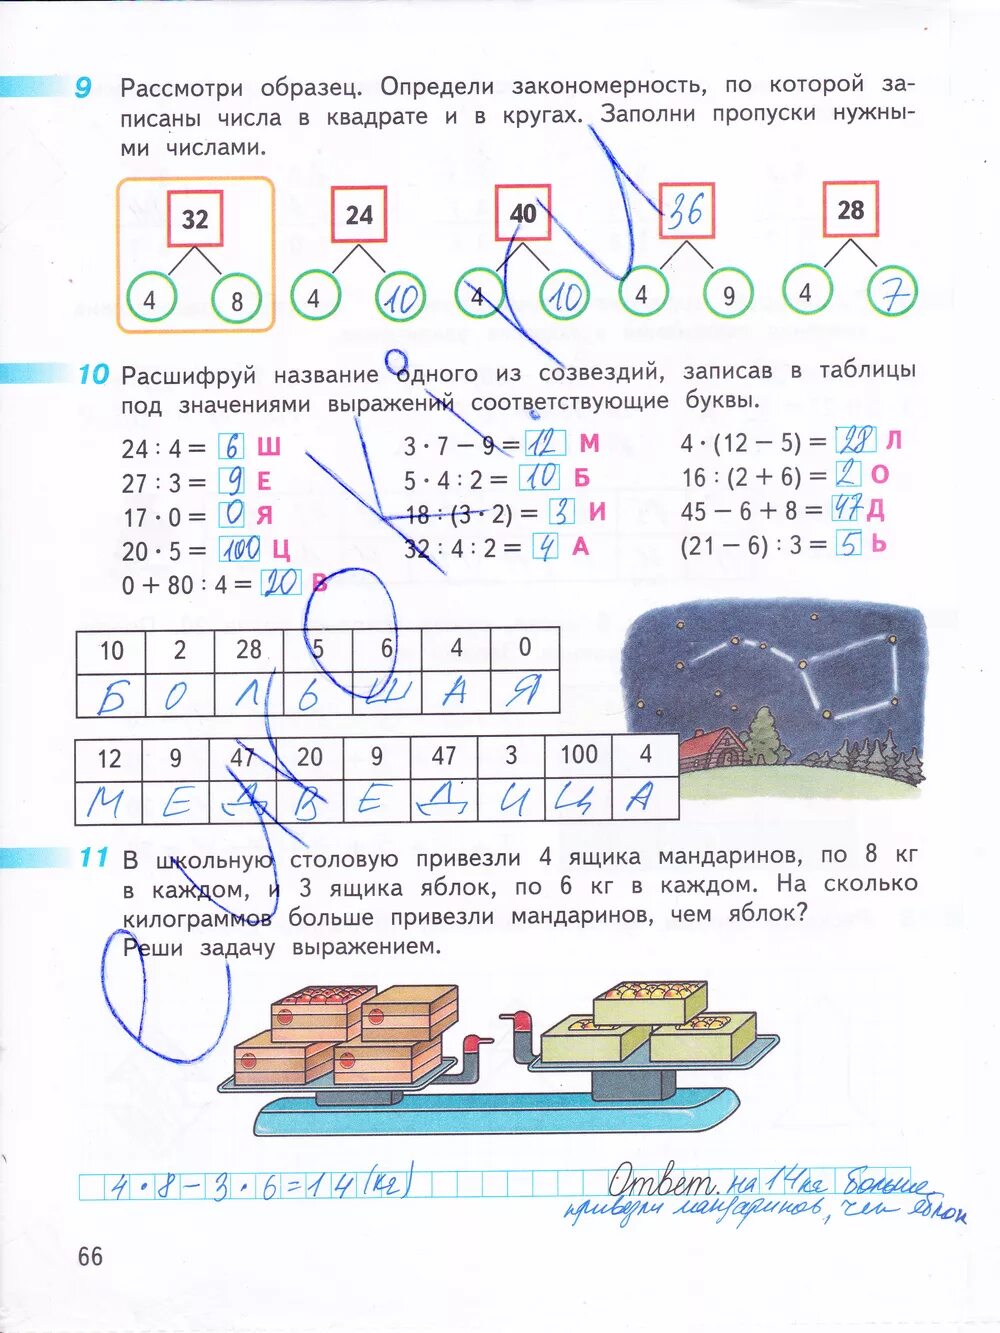 9 Рассмотри образец. Определи закономерность, по которой за-
писаны числа в квадрате и в кругах. Заполни пропуски нужны-
ми числами.
32 24 40 36 28
4 8 4 10 4 10 4 9 4 7
10 Расшифруй название одного из созвездий, записав в таблицы
под значениями выражений соответствующие буквы.
24 : 4 = 6 Ш 3 · 7 – 9 = 12 М 4 · (12 – 5) = 28 Л
27 : 3 = 9 Е 5 · 4 : 2 = 10 Б 16 : (2 + 6) = 2 О
17 · 0 = 0 Я 18 : (3 · 2) = 3 И 45 – 6 + 8 = 47 Д
20 · 5 = 100 Ц 32 : 4 : 2 = 4 А (21 – 6) : 3 = 5 Ь
0 + 80 : 4 = 20 В
10 2 28 5 6 4 0
Б О Л Ь Ш А Я
12 9 47 20 9 47 3 100 4
М Е Д В Е Д И Ц А
11 В школьную столовую привезли 4 ящика мандаринов, по 8 кг
в каждом, и 3 ящика яблок, по 6 кг в каждом. На сколько
килограммов больше привезли мандаринов, чем яблок?
Реши задачу выражением.
4 · 8 – 3 · 6 = 14 (кг) Ответ. на 14 кг больше
привезли мандаринов, чем яблок
66